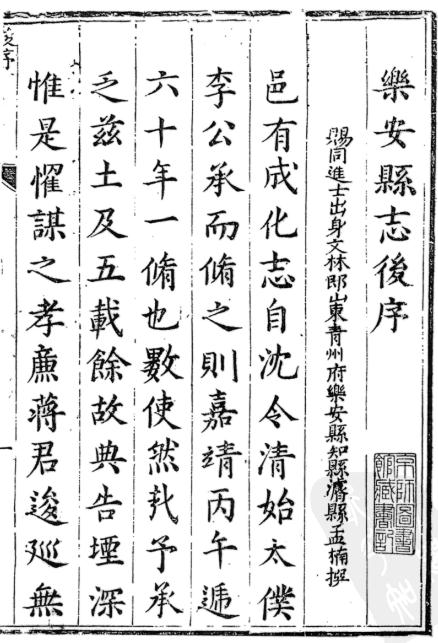 樂安縣志後序
賜同進士出身文林郎山東青州府樂安縣知縣濬縣孟楠撰
邑有成化志自沈令清始太僕
李公承而脩之則嘉靖丙午遞
六十年一脩也數使然㢤予承
乏茲土及五載餘故典告堙深
惟是懼謀之孝廉蔣君逡巡無
後序
京師圖書
館藏書記
一